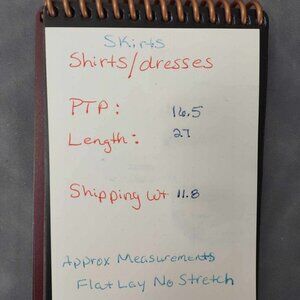 Skirts
Shirts/dresses
PTP: 16.5
Length: 27
Shipping wt 11.8
Approx Measurements
Flat Lay No Stretch